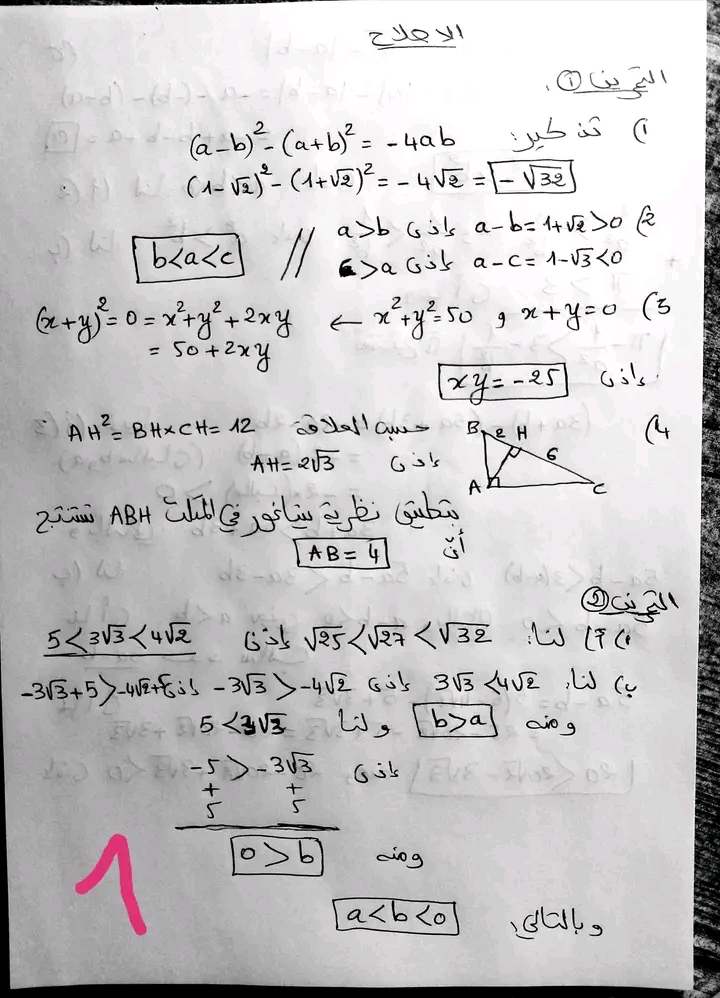 الاصلاح
التمرين ①
1) تذكير: (a-b)² - (a+b)² = -4ab
(1-√2)² - (1+√2)² = -4√2 = -√32
2) a-b = 1+√2 > 0 إذن a>b
a-c = 1-√3 < 0 إذن c>a // b<a<c
3) x+y=0 و x²+y²=50 ← (x+y)² = 0 = x²+y²+2xy
= 50+2xy
إذن xy = -25
4) B 2 H 6 A C حسب العلاقة AH² = BH×CH = 12
إذن AH = 2√3
بتطبيق نظرية بيتاغور في المثلث ABH نستنتج
أنّ AB = 4
التمرين ②
1) أ) لنا: √25 < √27 < √32 إذن 5 < 3√3 < 4√2
ب) لنا: 3√3 < 4√2 إذن -3√3 > -4√2 إذن -3√3+5 > -4√2+5
ومنه b>a ولنا 5 < 3√3
إذن -5 > -3√3
+ +
5 5
ومنه 0 > b
وبالتالي a<b<0
1